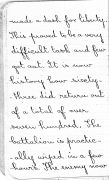 made a dash for liberty.
This proved to be a very
difficult task and few
got out. It is now
history how sixty-
three did return out
of a total of over
seven hundred. The
battalion is practic-
-ally wiped in a few
hours. The enemy now